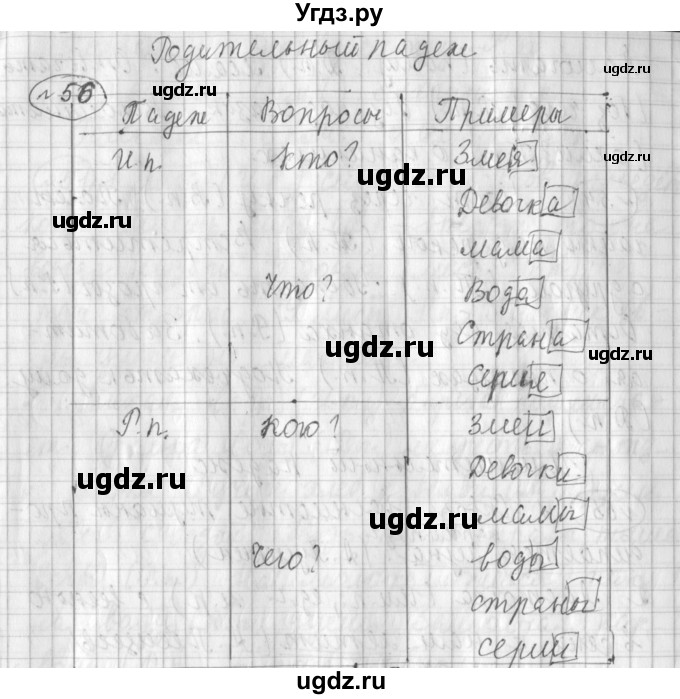 Угдз.ру
Родительный падеж
№56
Падеж Вопросы Примеры
И.п. Кто? Змея
Девочка
мама
Что? Вода
Страна
Серия
Р.п. Кого? Змеи
Девочки
мамы
Чего? воды
страны
серии
ugdz.ru
ugdz.ru
ugdz.ru
ugdz.ru
ugdz.ru
ugdz.ru
ugdz.ru
ugdz.ru
ugdz.ru
ugdz.ru
ugdz.ru
ugdz.ru
ugdz.ru